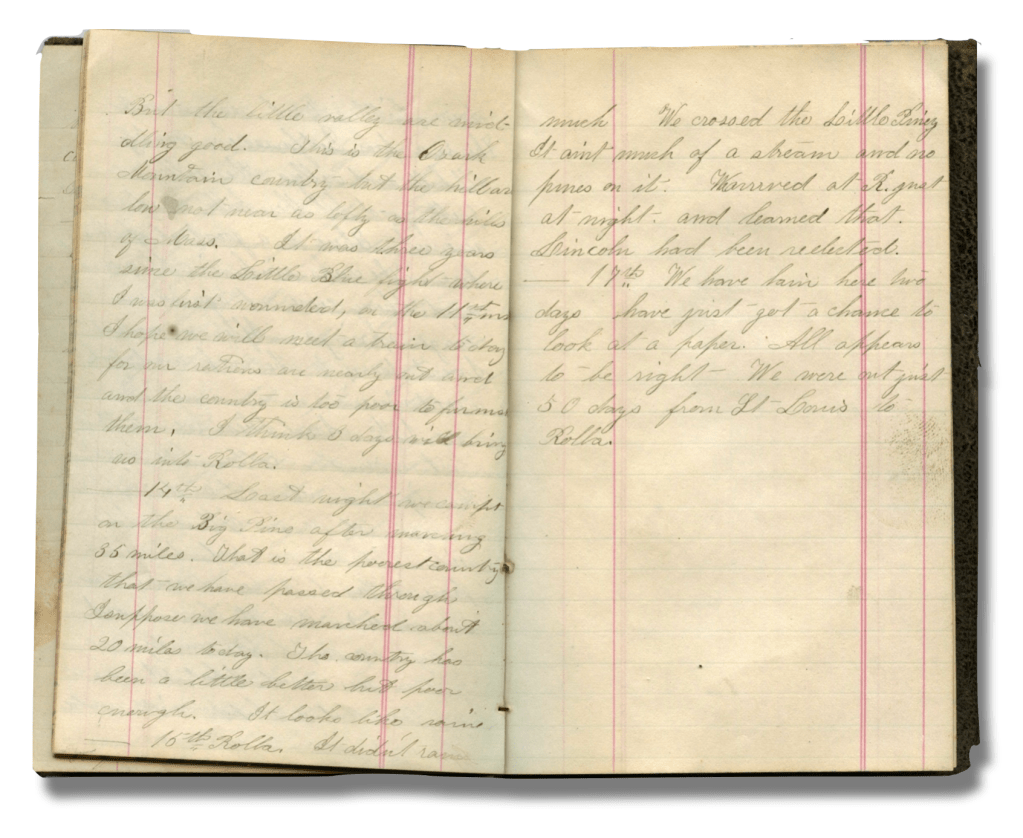 But the little valley are mid-
dling good. This is the Ozark
Mountain country but the hills are
low not near as lofty as the hills
of Mass. It was three years
since the Little Blue fight where
I was first wounded, on the 11th
I hope we will meet a train to day
for our rations are nearly out and
and the country is too poor to furnish
them. I think 3 days will bring
us into Rolla.
14th Last night we campt
on the Big Pine after marching
35 miles. That is the poorest country
that we have passed through
I suppose we have marched about
20 miles today. The country has
been a little better but poor
enough. It looks like raine
— 16th Rolla. It didn't rain
much We crossed the Little Piney
It aint much of a stream and no
pines on it. We arrived at R. just
at night and learned that
Lincoln had been reelected.
— 17th We have lain here two
days have just got a chance to
look at a paper. All appears
to be right We were out just
50 days from St Louis to
Rolla.